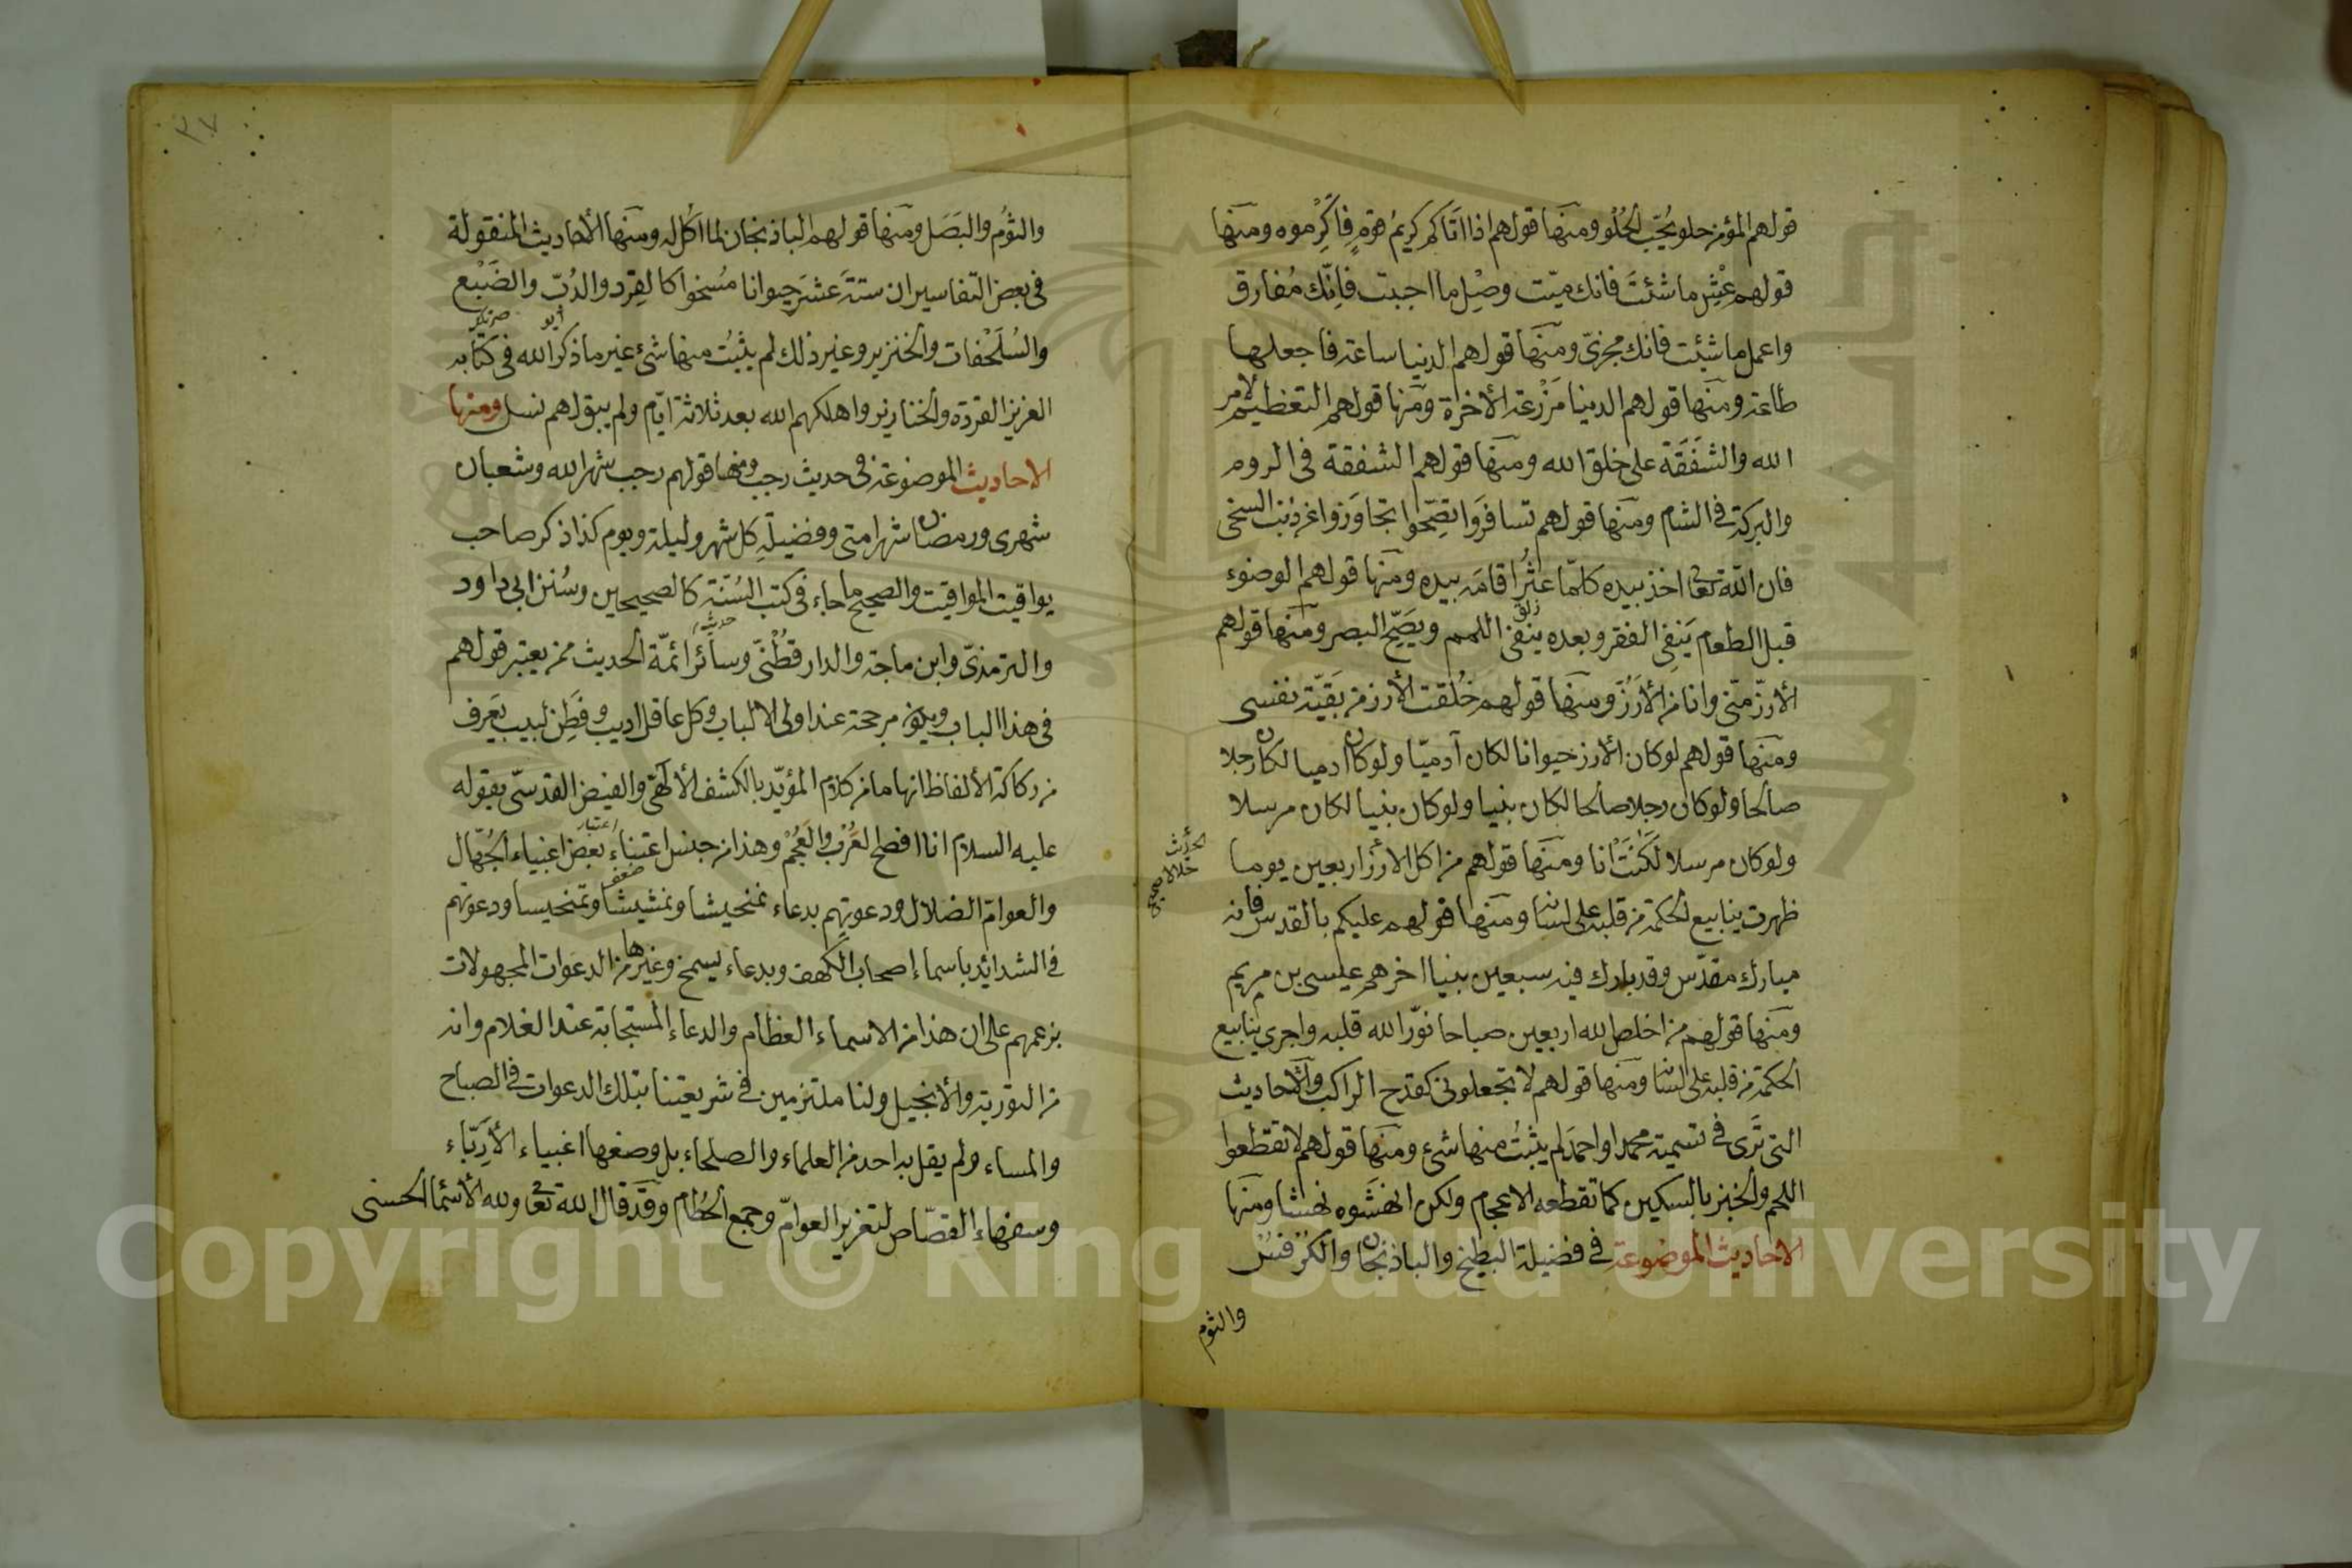 قولهم المؤمن حلو يحب الحلو ومنها قولهم اذا اتاكم كريم قوم فاكرموه ومنها
قولهم عش ما شئت فانك ميت وصل ما احببت فانك مفارق
واعمل ما شئت فانك مجزي ومنها قولهم الدنيا ساعة فاجعلها
طاعة ومنها قولهم الدنيا مزرعة الأخرة ومنها قولهم التعظيم لامر
الله والشفقة على خلق الله ومنها قولهم الشفقة في الروم
والبركة في الشام ومنها قولهم تسافروا تصحوا تجاوزوا عن ذنب السخى
فان الله تعا اخذ بيده كلما عثر اقامه بيده ومنها قولهم الوضوء
قبل الطعام ينفى الفقر وبعده ينفى اللمم ويصح البصر ومنها قولهم
الأرز منى وانا من الأرز ومنها قولهم خلقت الأرز من بقية نفسى
ومنها قولهم لو كان الأرز حيوانا لكان آدميا ولو كان ادميا لكان رجلا
صالحا ولو كان رجلا صالحا لكان نبيا ولو كان نبيا لكان مرسلا
ولو كان مرسلا لكنت انا ومنها قولهم من اكل الارز اربعين يوما
ظهرت ينابيع الحكمة من قلبه على لسانه ومنها قولهم عليكم بالقدس فانه
مبارك مقدس وقد بارك فيه سبعين نبيا اخرهم عيسى بن مريم
ومنها قولهم من اخلص لله اربعين صباحا نور الله قلبه واجرى ينابيع
الحكمة من قلبه على لسانه ومنها قولهم لا تجعلونى كقدح الراكب والأحاديث
التى ترى في تسمية محمد او احمد لم يثبت منها شئ ومنها قولهم لا تقطعوا
اللحم والخبز بالسكين كما تقطعه الاعجام ولكن انهشوه نهشا ومنها
الاحاديث الموضوعة في فضيلة البطيخ والباذنجان والكرفس
والثوم
٣٧
والثوم والبصل ومنها قولهم الباذنجان لما اكل له ومنها الأحاديث المنقولة
فى بعض التفاسير ان ستة عشر حيوانا مسخوا كالقرد والدب والضبع
والسلحفات والخنزير وغير ذلك لم يثبت منها شئ غير ما ذكر الله في كتابه
العزيز القردة والخنازير واهلكهم الله بعد ثلاثة ايام ولم يبق لهم نسل ومنها
الاحاديث الموضوعة في حديث رجب ومنها قولهم رجب شهر الله وشعبان
شهرى ورمضان شهر امتى وفضيلة كل شهر وليلة ويوم كذا ذكر صاحب
يواقيت المواقيت والصحيح ما جاء في كتب السنة كالصحيحين وسنن ابى داود
والترمذي وابن ماجة والدارقطنى وسائر ائمة الحديث ممن يعتبر قولهم
في هذا الباب ويكون مرجحة عند اولى الالباب وكل عاقل اديب وفطن لبيب يعرف
من ركاكة الألفاظ انها ما من كلام المؤيد بالكشف الألهى والفيض القدسى بقوله
عليه السلام انا افصح العرب والعجم وهذا من جنس اعتناء بعض اغبياء الجهال
والعوام الضلال ودعوتهم بدعاء تمخيشا وتمشيشا وتمخيسا ودعوتهم
في الشدايد باسماء اصحاب الكهف وبدعاء يسمخ وغيرها من الدعوات المجهولات
بزعمهم على ان هذا من الاسماء العظام والدعاء المستجابة عند الغلام وانه
من التورية والأنجيل ولنا ملتزمين في شريعتنا بتلك الدعوات في الصباح
والمساء ولم يقل به احد من العلماء والصلحاء بل وضعها اغبياء الأرياء
وسفهاء القصاص لتغرير العوام وجمع الحطام وقد قال الله تعا ولله الأسماء الحسنى